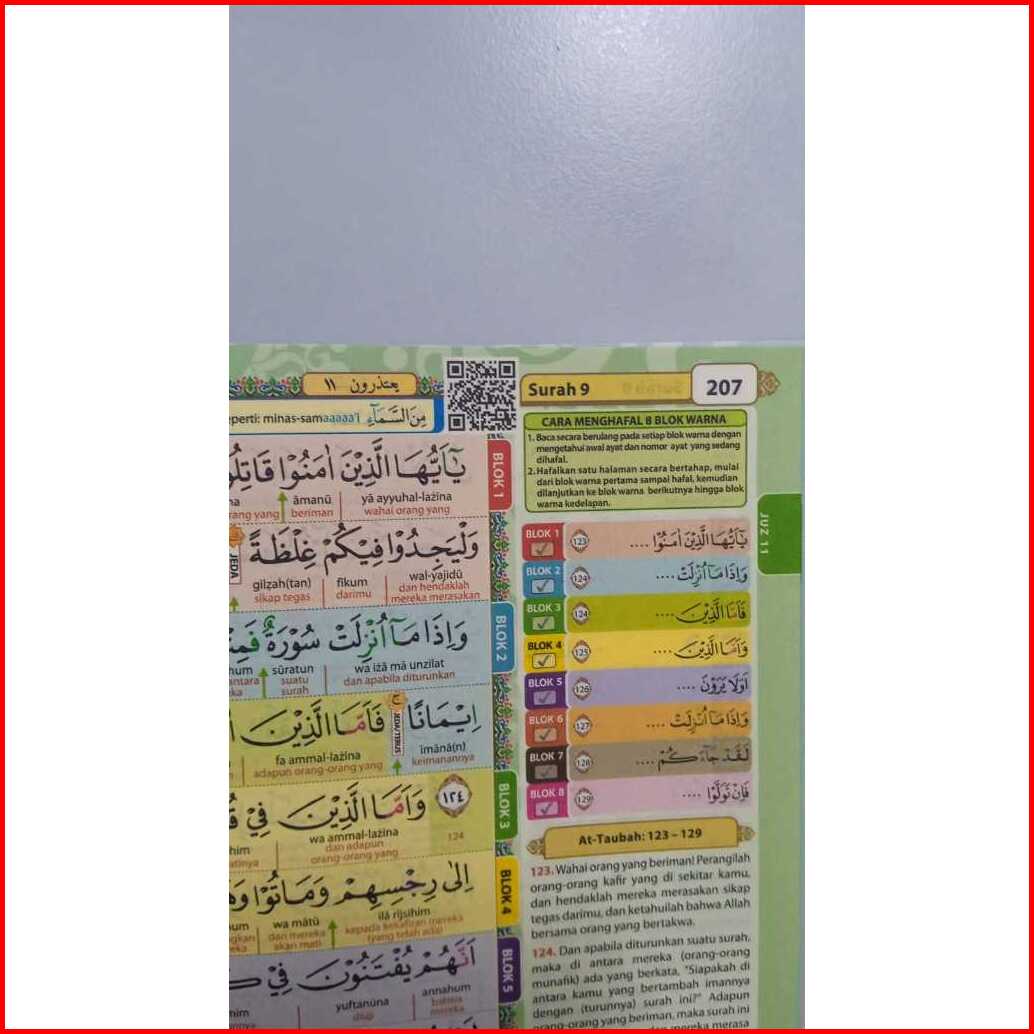 يعتذرون ١١
Surah 9
207
perti: minas-samaaaaa'i مِنَ السَّمَآءِ
CARA MENGHAFAL 8 BLOK WARNA
1. Baca secara berulang pada setiap blok warna dengan
mengetahui awal ayat dan nomor ayat yang sedang
dihafal.
2. Hafalkan satu halaman secara bertahap, mulai
dari blok warna pertama sampai hafal, kemudian
dilanjutkan ke blok warna berikutnya hingga blok
warna kedelapan.
JUZ 11
BLOK 1
يٰٓاَيُّهَا الَّذِيْنَ اٰمَنُوْا قَاتِلُو
yā ayyuhal-lażīna
āmanū
wahai orang yang
beriman
rang yang
وَلْيَجِدُوْا فِيْكُمْ غِلْظَةً
wal-yajidū
fīkum
gilẓah(tan)
dan hendaklah
mereka merasakan
darimu
sikap tegas
BLOK 2
وَاِذَا مَآ اُنْزِلَتْ سُوْرَةٌ فَمِنْ
wa iżā mā unzilat
sūratun
dan apabila diturunkan
suatu
surah
اِيْمَانًا فَاَمَّا الَّذِيْنَ
īmānā(n)
fa ammal-lażīna
keimanannya
adapun orang-orang yang
BLOK 3
١٢٤ وَاَمَّا الَّذِيْنَ فِيْ
wa ammal-lażīna
124
dan adapun
orang-orang yang
BLOK 4
اِلٰى رِجْسِهِمْ وَمَاتُوْا وَهُ
ilā rijsihim
wa mātū
kepada kekafiran mereka
(yang telah ada)
dan mereka
akan mati
BLOK 5
اَنَّهُمْ يُفْتَنُوْنَ فِيْ
annahum
yuftanūna
bahwa
mereka
diuji
BLOK 1 123 يٰٓاَيُّهَا الَّذِيْنَ اٰمَنُوْا ....
BLOK 2 124 وَاِذَا مَآ اُنْزِلَتْ ....
BLOK 3 124 فَاَمَّا الَّذِيْنَ ....
BLOK 4 125 وَاَمَّا الَّذِيْنَ ....
BLOK 5 126 اَوَلَا يَرَوْنَ ....
BLOK 6 127 وَاِذَا مَآ اُنْزِلَتْ ....
BLOK 7 128 لَقَدْ جَاۤءَكُمْ ....
BLOK 8 129 فَاِنْ تَوَلَّوْا ....
At-Taubah: 123 – 129
123. Wahai orang yang beriman! Perangilah
orang-orang kafir yang di sekitar kamu,
dan hendaklah mereka merasakan sikap
tegas darimu, dan ketahuilah bahwa Allah
bersama orang yang bertakwa.
124. Dan apabila diturunkan suatu surah,
maka di antara mereka (orang-orang
munafik) ada yang berkata, "Siapakah di
antara kamu yang bertambah imannya
dengan (turunnya) surah ini?" Adapun
orang-orang yang beriman, maka surah ini
mereka merasa